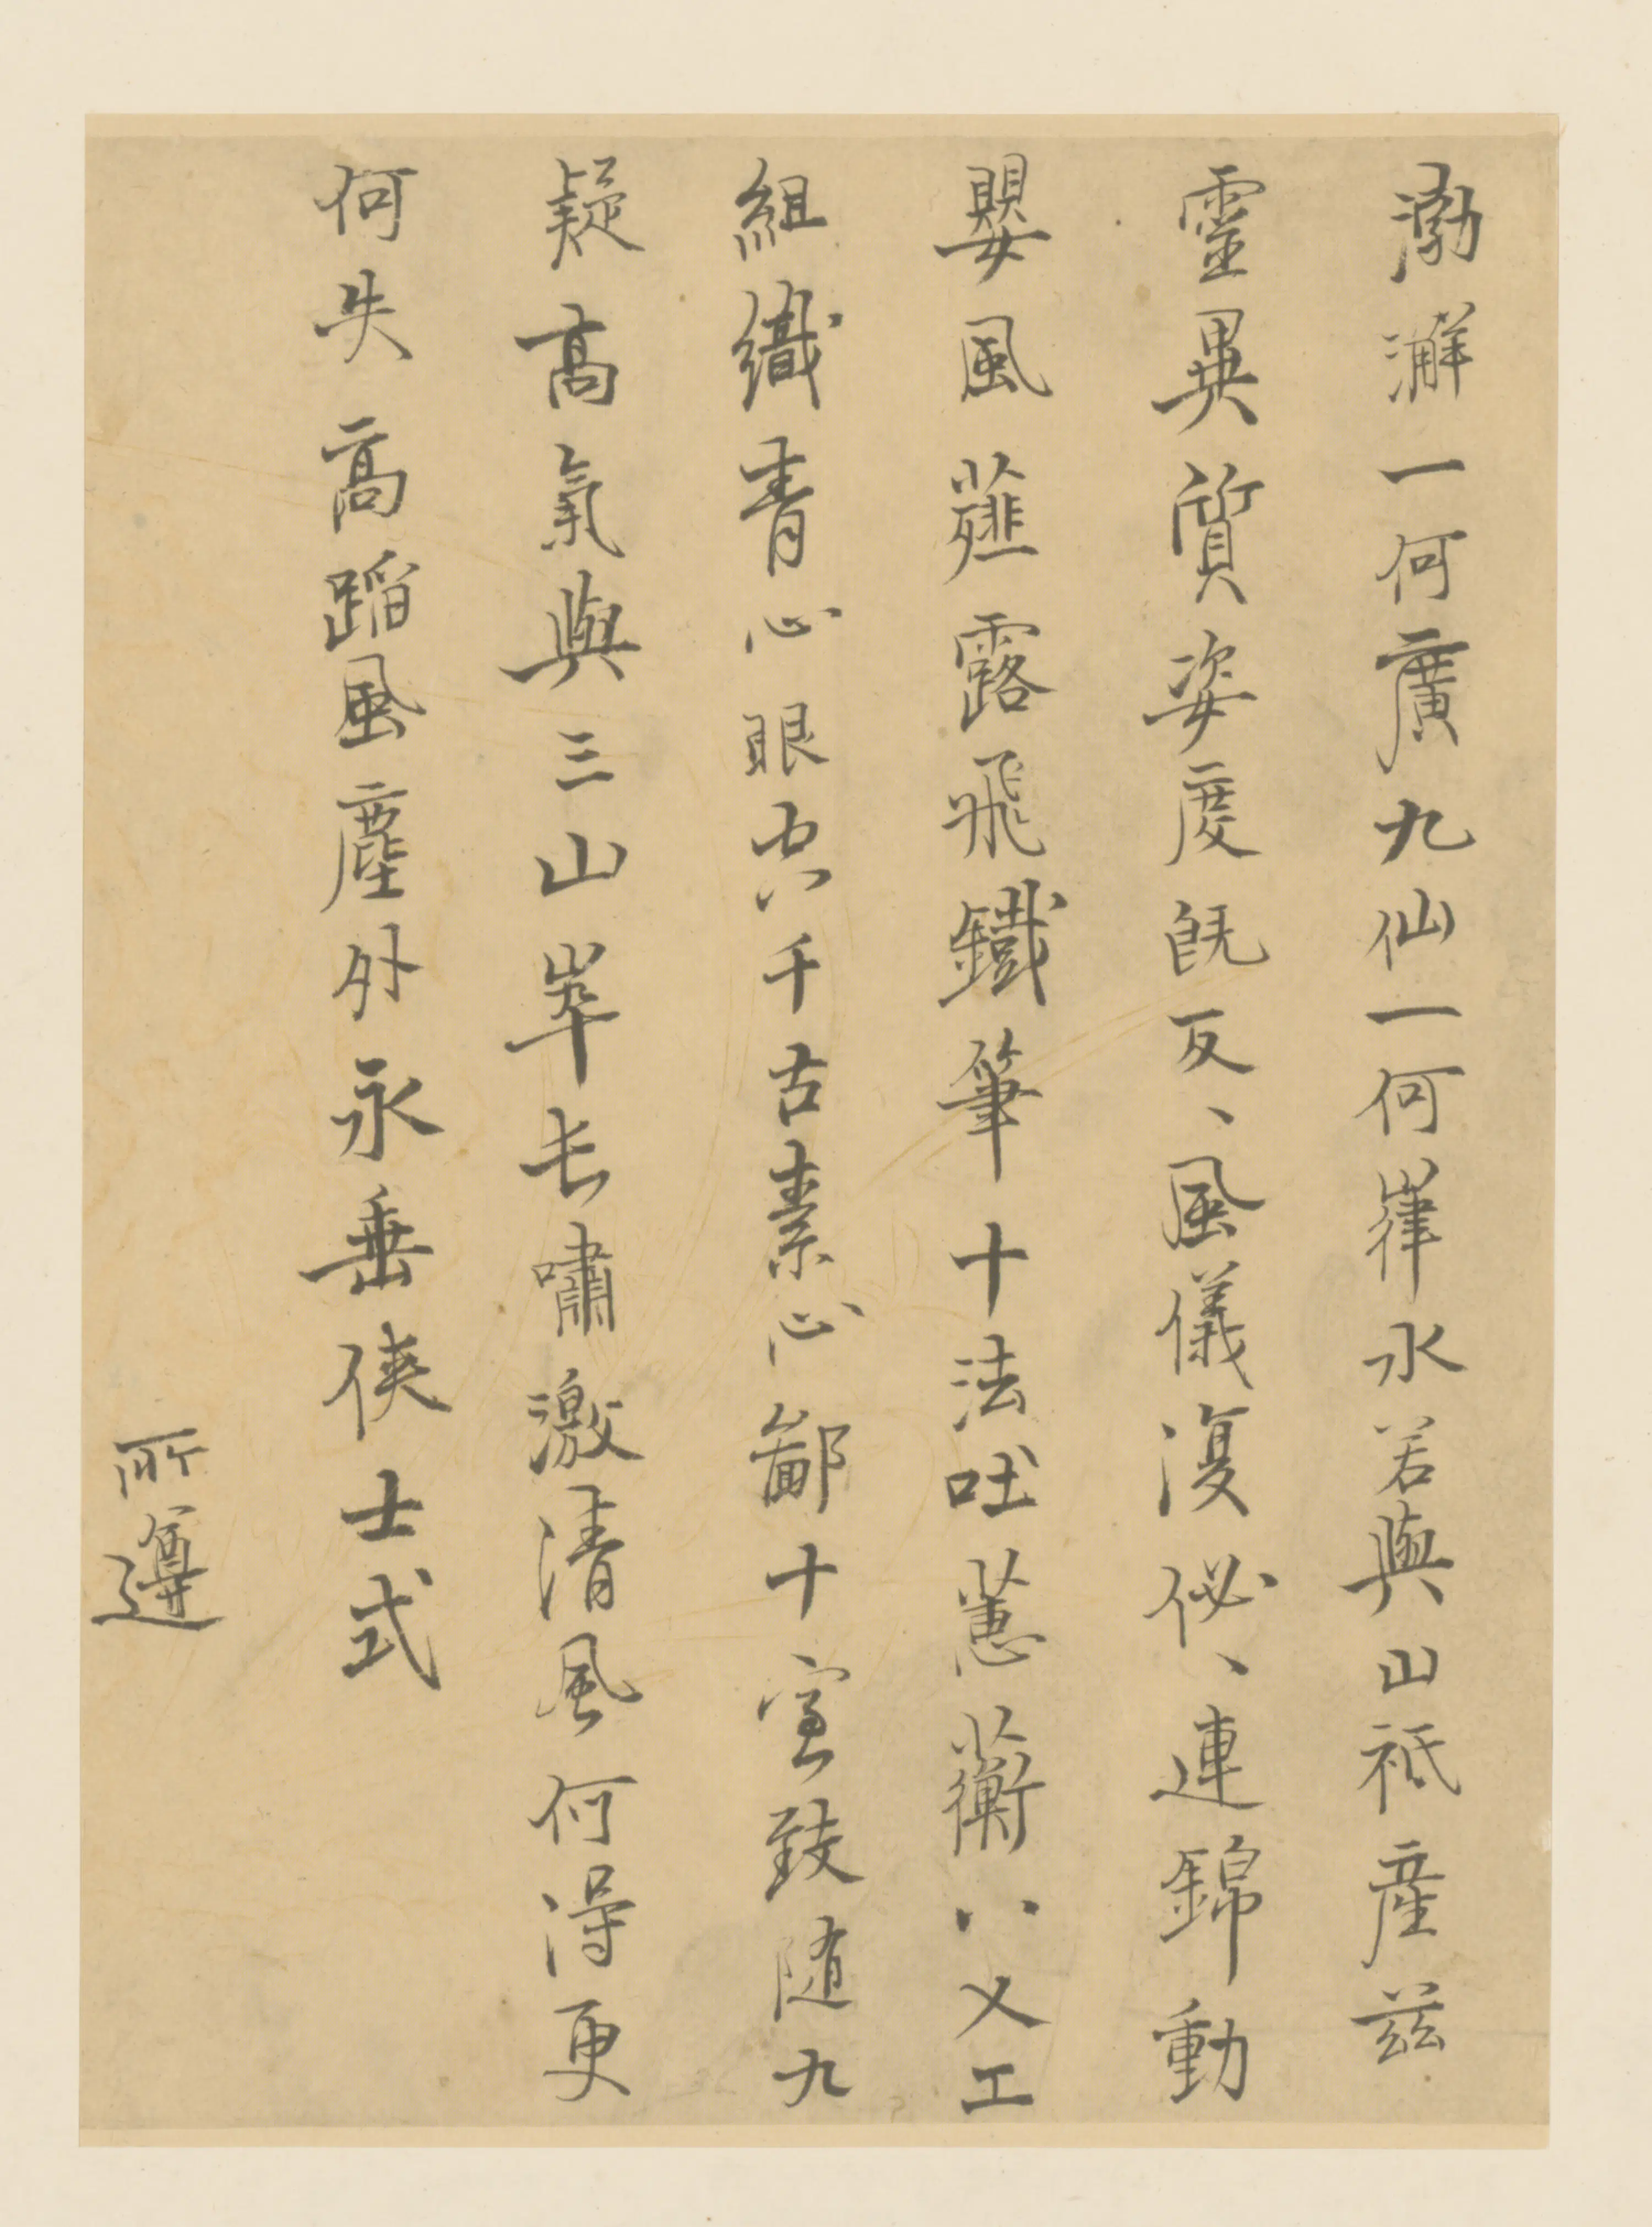 渤澥一何廣九仙一何嵂水若與山祇産兹
靈異質姿度既反、風儀復佖、連錦動
嬰風薤露飛鐵筆十法吐蕙蘅八乂工
組織青心眼空千古素心鄙十室致随九
疑高氣與三山崒长嘯激清風何得更
何失高蹈風塵外永垂俠士式
所遵